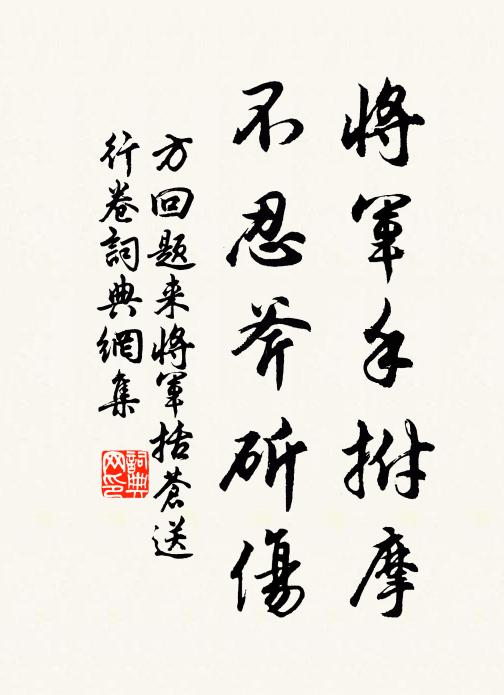 將軍手拊摩
不忍斧斫傷
方回題来將軍括蒼送
行卷詞典網集
詞典网印